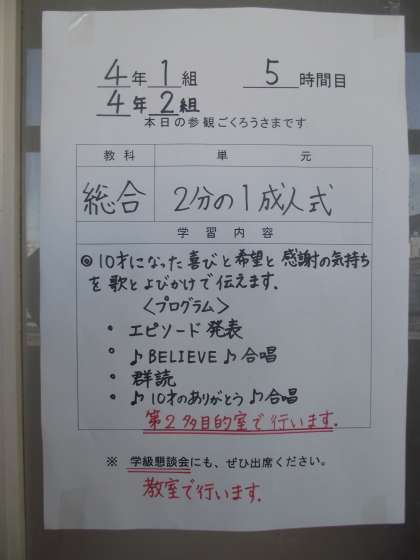 4年1組 5時間目
4年2組
本日の参観ごくろうさまです
教科 単元
総合 2分の1成人式
学習内容
◎10才になった喜びと希望と感謝の気持ち
を歌とよびかけで伝えます.
〈プログラム〉
・エピソード発表
・♪BELIEVE♪合唱
・群読
・♪10才のありがとう♪合唱
第2多目的室で行います.
※ 学級懇談会にも、ぜひ出席ください。
教室で行います.